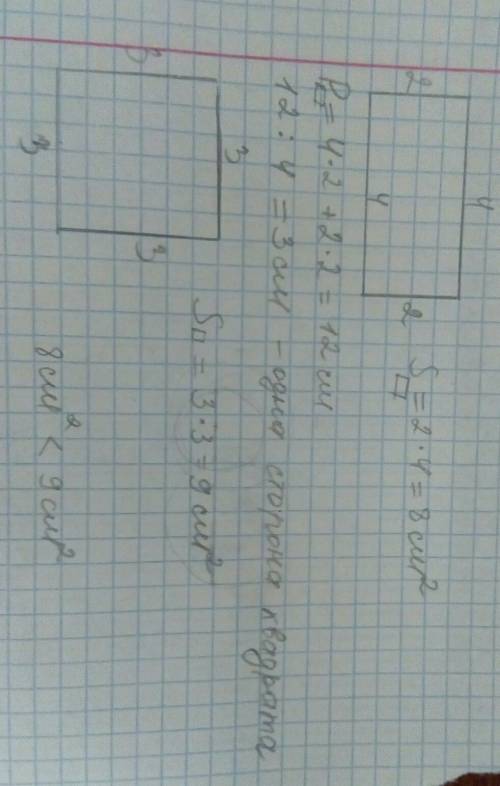 4
2
2
4
S▭ = 2·4 = 8 см²
P▭ = 4·2 + 2·2 = 12 см
12 : 4 = 3 см – одна сторона квадрата
3
3
3
3
S□ = 3·3 = 9 см²
8 см² < 9 см²